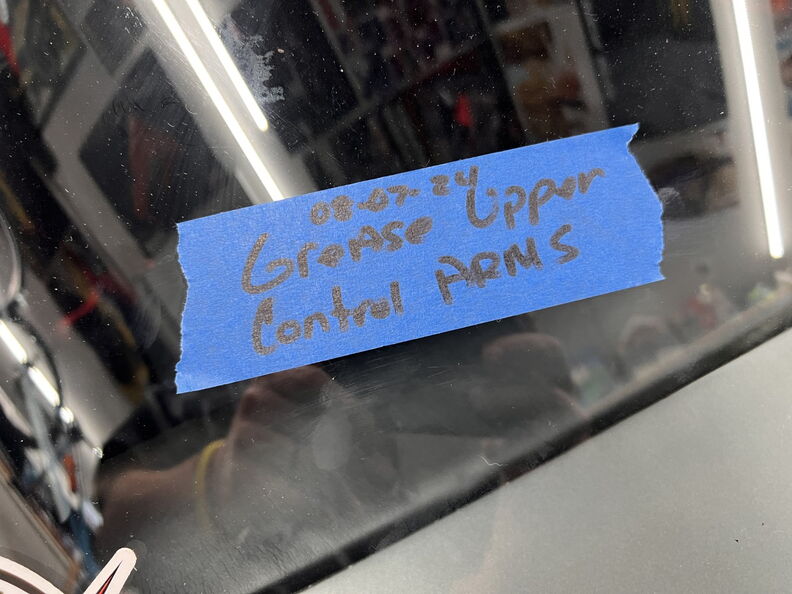 08-07-24
Grease Upper
Control ARMS